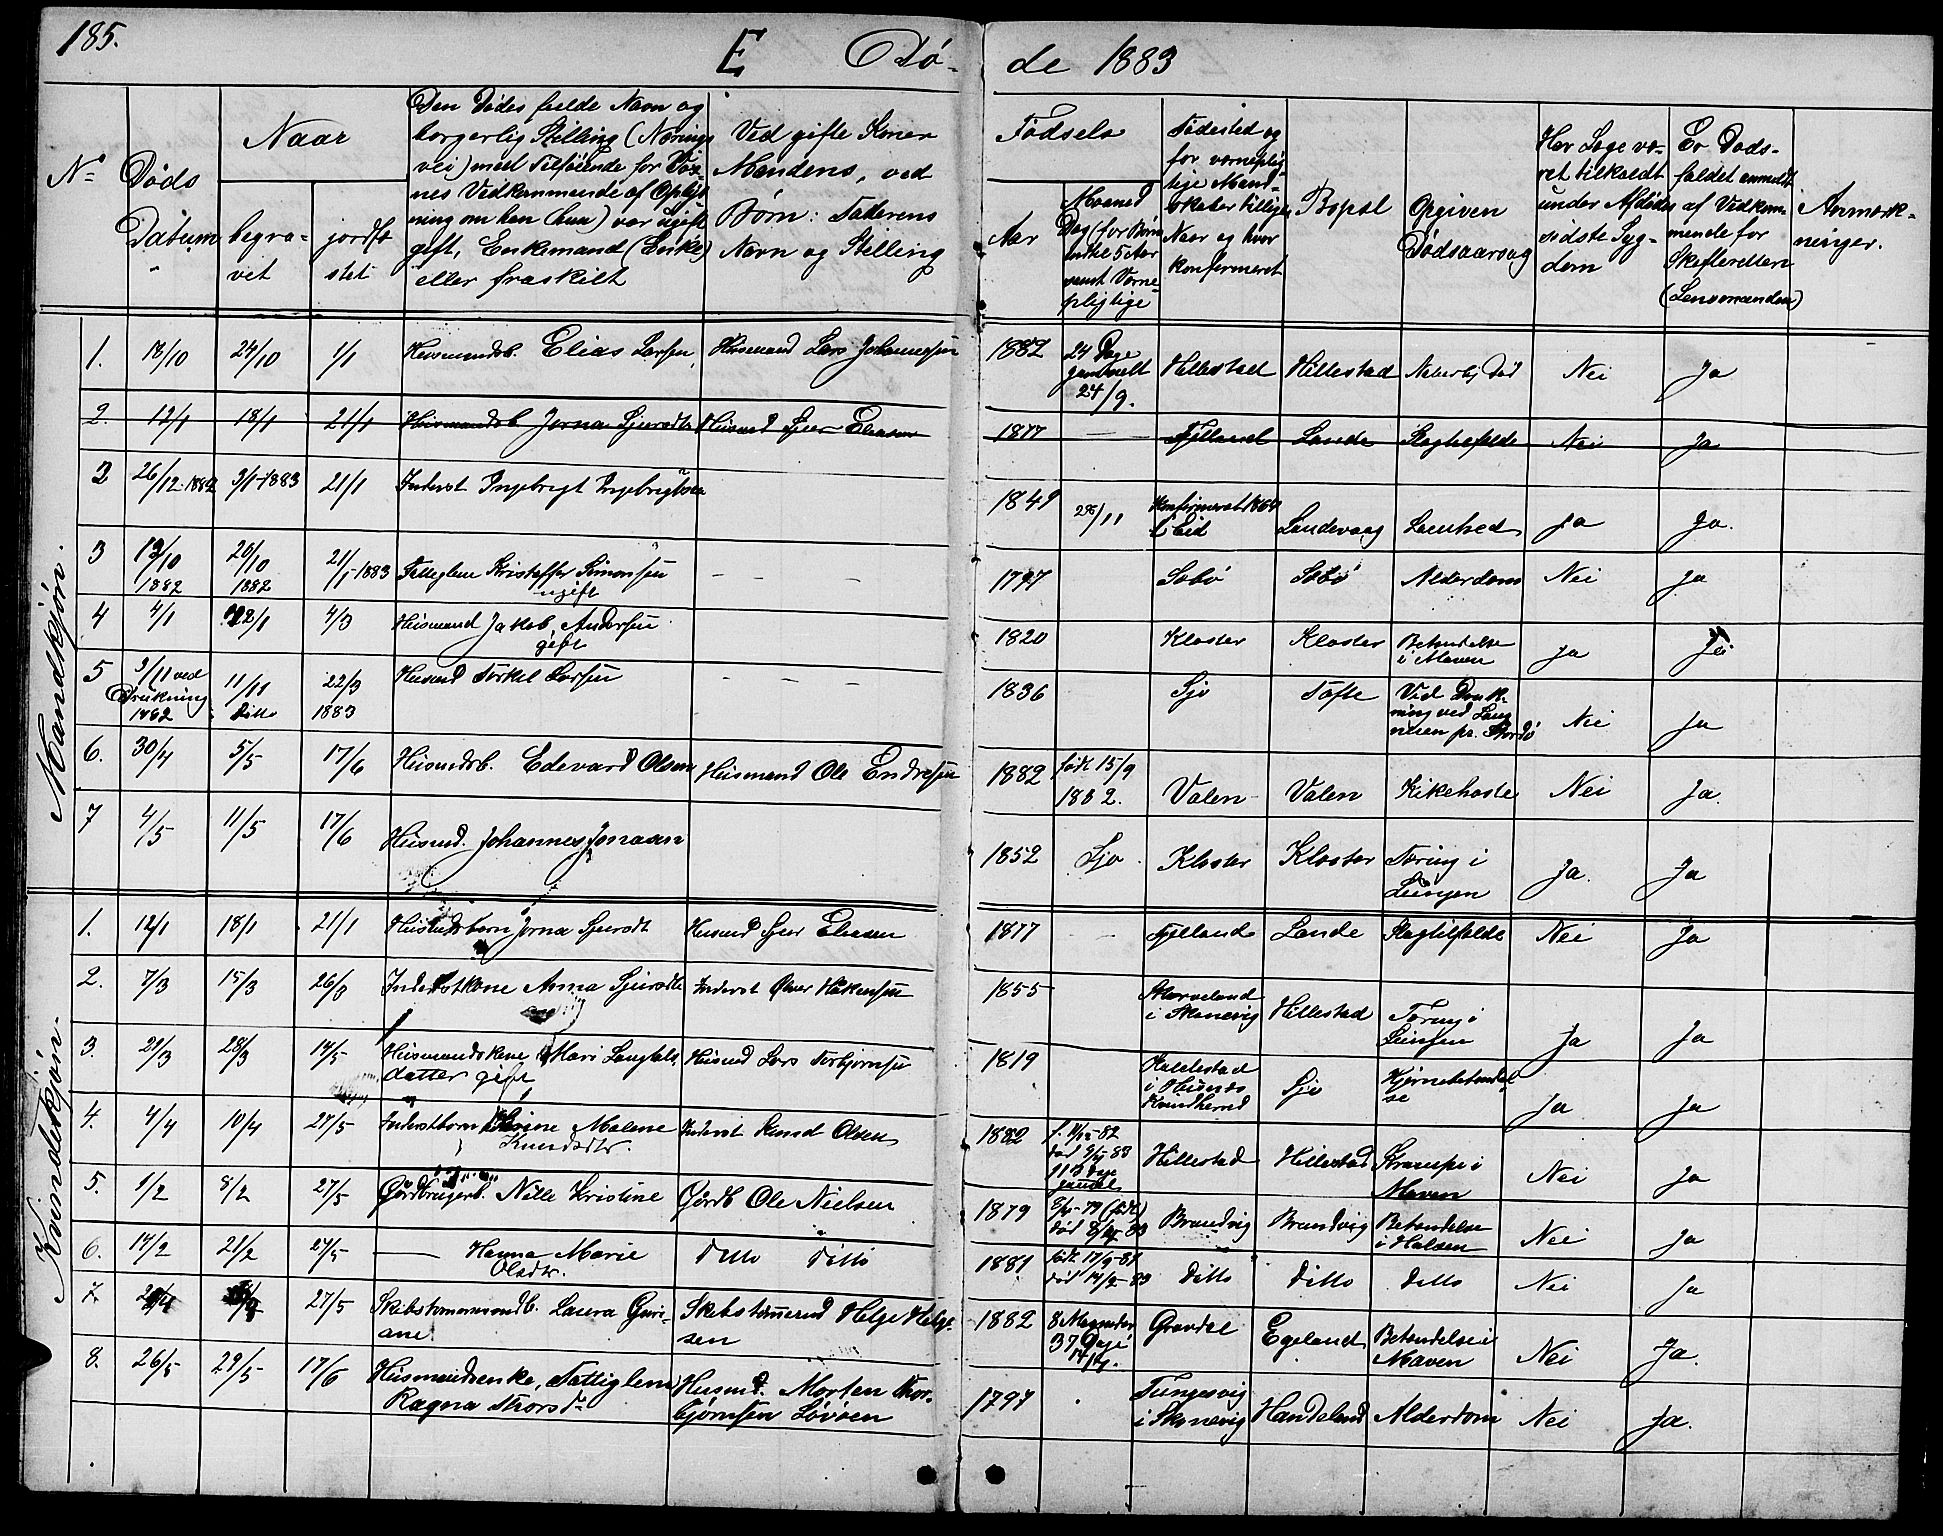 185.
E Dø-
de 1883
No
Døds
Datum
Naar
begra-
vet
jordfæ
stet
Den Dødes fulde Navn og
borgerlig Stilling (Nærings
vei) med Tilføiende for Vox-
nes Vedkommende af Oplys
ning om han (hun) var ugift
gift, Enkemand (Enke)
eller fraskilt
Ved gifte Koner
Mandens, ved
Børn: Faderens
Navn og Stilling
Fødsels
Aar
Maaned
Dag (for Børn
under 5 Aar
samt Værne-
pligtige
Fødested og
for værneplig
tige Mand-
skaber tillige
Naar og hvor
konfirmeret
Bopæl
Opgiven
Dødsaarsag
Har Læge væ-
ret tilkaldt
under Afdødes
sidste Syg-
dom
Er Døds-
faldet anmeldt
af Vedkom-
mende for
Skifteretten
(Lensmanden)
Anmærk-
ninger.
Mandkjøn.
1. 18/10 24/10 1/1 Husmandsb. Elias Larsen, Husmand Lars Johannesen 1882 24 Dage
gammelt
24/9. Hillestad Hillestad Naturlig Død Nei Ja
2. 12/1 18/1 21/1 Husmandsb. Jorna Sjursdtr Husmd Sjur Eliasen 1877 — Fjelland Lande Slagtilfælde Nei Ja
2 26/12-1882 3/1-1883 21/1 Inderst Ingebrigt Ingebrigtsen 1849 28/11 Konfirmeret 1864
i Eid Landevaag Lamhed Ja Ja.
3 13/10
1882 20/10
1882 21/1-1883 Fattiglem Kristoffer Simonsen
ugift — — — 1797 Sæbø Sæbø Alderdom Nei Ja
4 4/1 12/1 4/3 Husmand Jakob Andersen
gift 1820 Kloster Kloster Betændelse
i Maven Ja Ja
5 3/11 ved
Drukning
1882 11/11
Ditto 22/3
1883 Husmd Torkel Larsen — — — 1836 Sjo Tofte Ved Druk-
ning ved Lang
nuen pr. Stordø Nei Ja
6. 30/4 5/5 17/6 Husmdsb. Edevard Olsen Husmand Ole Endresen 1882 født 15/9
1882. Valen Valen Kikehoste Nei Ja.
7 4/5 11/5 17/6 Husmd. Johannes Jonassen 1852 Sjo Kloster Kloster Tæring i
Lungen Ja. Ja
Kvindekjøn.
1. 12/1 18/1 21/1 Husmdsbarn Jorna Sjursdt Husmd Sjur Eliasen 1877 — Fjelland Lande Slagtilfælde Nei Ja
2. 7/3 15/3 26/3 Inderstkone Anna Sjursdtr Inderst Håkensen 1855 i Skonevig Hillestad Tæring i
Lungen Ja Ja
3. 21/3 28/3 14/5 Husmandskone Mari Langtals
datter gift Husmd Lars Torbjørnsen 1819 Hallestad
i Husnæs
Kvindherred Sjo Hjernebetændel
se Ja Ja
4. 4/4 10/4 27/5 Inderstbarn Malene
Knudsdtr. Inderst Knud Olsen 1882 Hillestad Hillestad Krampe i
Maven Nei Ja
5. 1/2 8/2 27/5 Gårdbrugerb. Nille Kristine Gårdb Ole Nielsen 1879 Brandvig Brandvig Betændelse
i Halsen Nei Ja
6. 14/2 21/2 27/5 — Hanna Marie
Olsdtr. ditto ditto 1881 født 17/9-81
død 14/2-83 ditto ditto ditto Nei Ja
7. 27/5 Skibstømmermandb. Laura Guri-
ane Skibstømrmd Helge Helge-
sen 1882 8 Maaneder Gravdal Egeland Betændelse i
Maven Nei Ja.
8. 26/5 29/5 17/6 Husmandsenke, Fattiglem
Ragna Thorsd. Husmd. Morten Thor-
bjørnsen Løvåen 1797 Tungesvig
i Skonevig Handeland Alderdom Nei Ja.